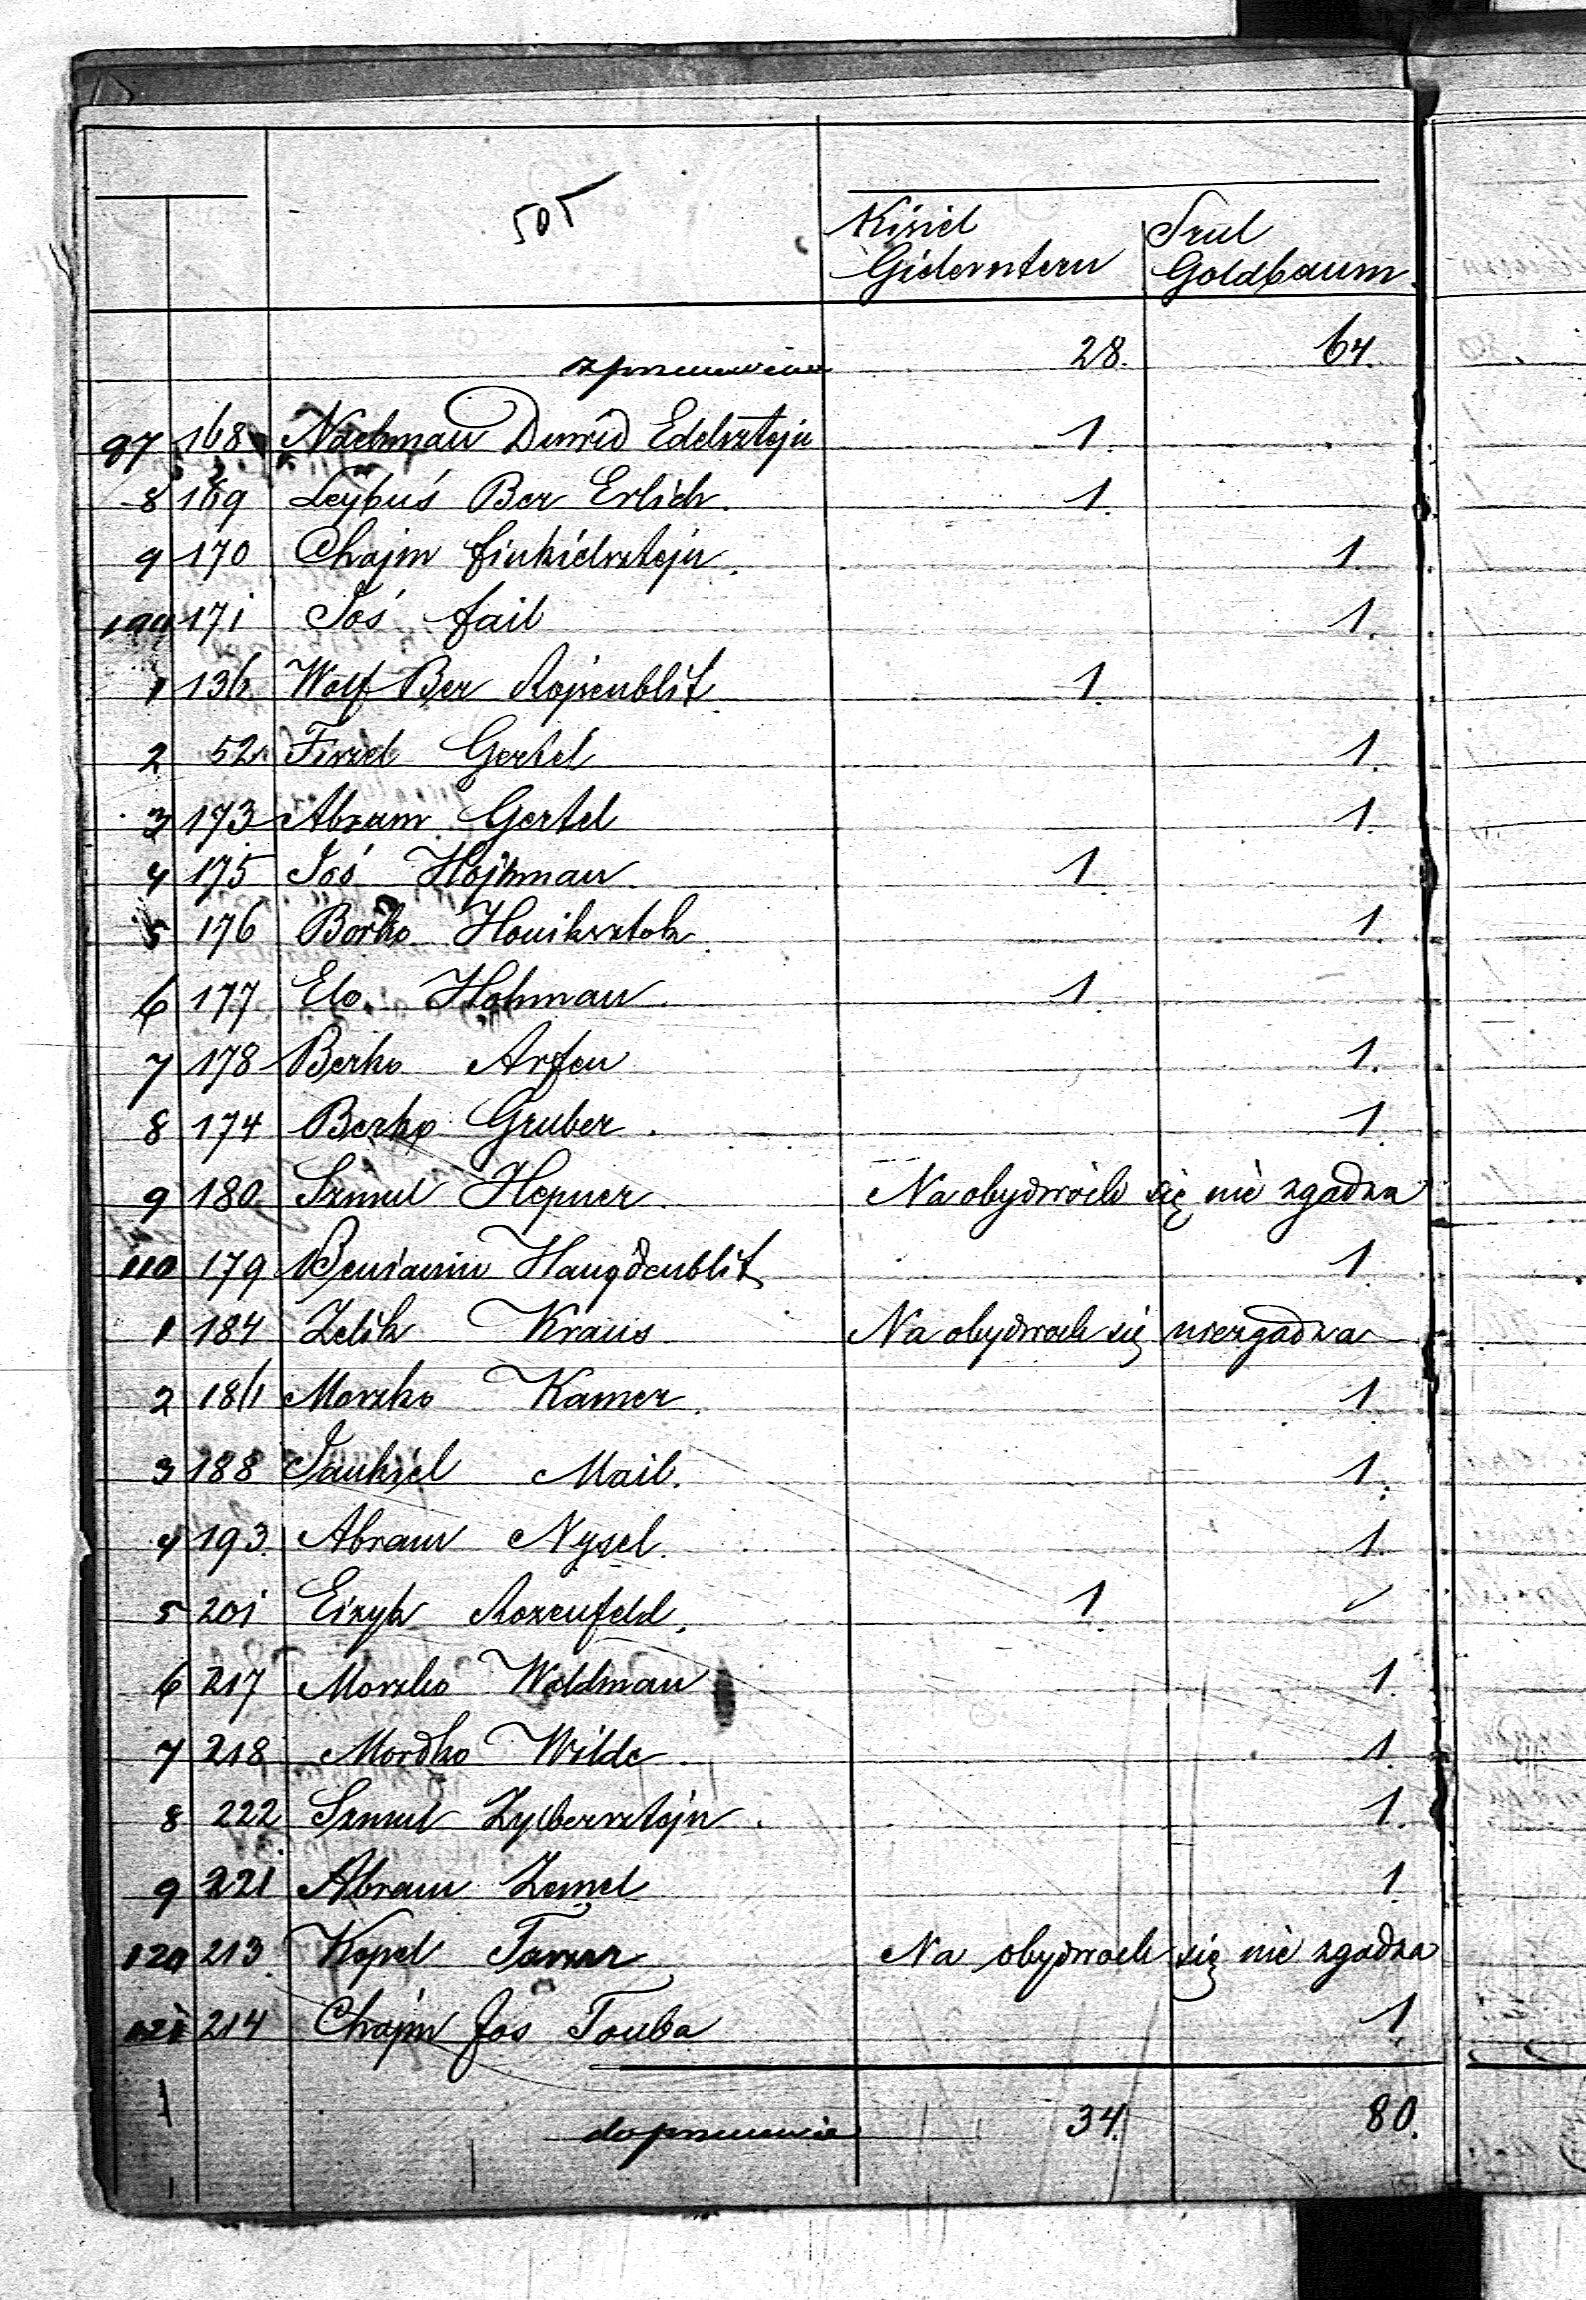 505
Kisiel Giderntern
Srul Goldbaum
z przeniesienia 28. 64.
97 168 Nachman Dawid Edelsztejn 1.
8 169 Leybuś Ber Erlich. 1.
9 170 Chajm Finkielsztejn. 1.
100 171 Joś Fail 1.
1 136 Wolf Ber Rojzenblit 1.
2 52 Fiszel Gertel 1.
3 173 Abram Gertel 1.
4 175 Joś Hojhman 1.
5 176 Borko Honiksztok 1.
6 177 Elo Hohman 1.
7 178 Berko Arfen 1.
8 174 Berko Gruber. 1.
9 180 Szmul Hepner. Na obydwóch się nie zgadza
110 179 Beniamin Hangdenblit 1.
1 184 Zelik Kraus Na obydwoch się niezgadza
2 186 Moszko Kamer. 1.
3 188 Jankiel Mail. 1.
4 193. Abram Nysel. 1.
5 201 Eizyk Rozenfeld. 1.
6 217 Moszko Woldman 1.
7 218 Mordko Wilde 1.
8 222 Szmul Zylbersztejn. 1.
9 221 Abram Zemel 1.
120 213 Kopel Na obydwoch się nie zgadza
121 214 Chajm Jos Touba 1.
do przeniesienia 34. 80.